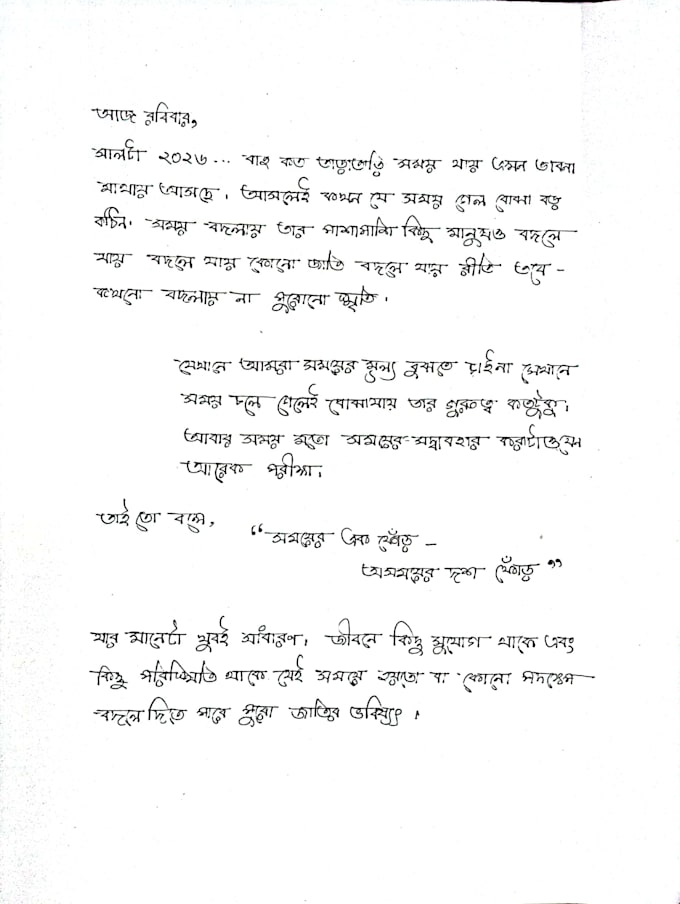 আজ রবিবার,
সালটা ২০২৬... বাহ কত তাড়াতাড়ি সময় যায় এমন ভাবনা
মাথায় আসছে। আসলেই কখন যে সময় গেল বোঝা বড়
কঠিন। সময় বদলায় তার পাশাপাশি কিছু মানুষও বদলে
যায় বদলে যায় কোনো জাতি বদলে যায় রীতি তবে -
কখনো বদলায় না পুরোনো স্মৃতি।
যেখানে আমরা সময়ের মূল্য বুঝতে চাইনা সেখানে
সময় চলে গেলেই বোঝাযায় তার গুরুত্ব কতটুকু।
আবার সময় মতো সময়ের সদ্ব্যবহার করাটাও যেন
আরেক পরীক্ষা।
তাই তো বলে,
“সময়ের এক ফোঁড় -
অসময়ের দশ ফোঁড়”
যার মানেটা খুবই সাধারণ। জীবনে কিছু সুযোগ থাকে এবং
কিছু পরিস্থিতি থাকে সেই সময়ে হয়তো বা কোনো পদক্ষেপ
বদলে দিতে পারে পুরো জাতির ভবিষ্যৎ।